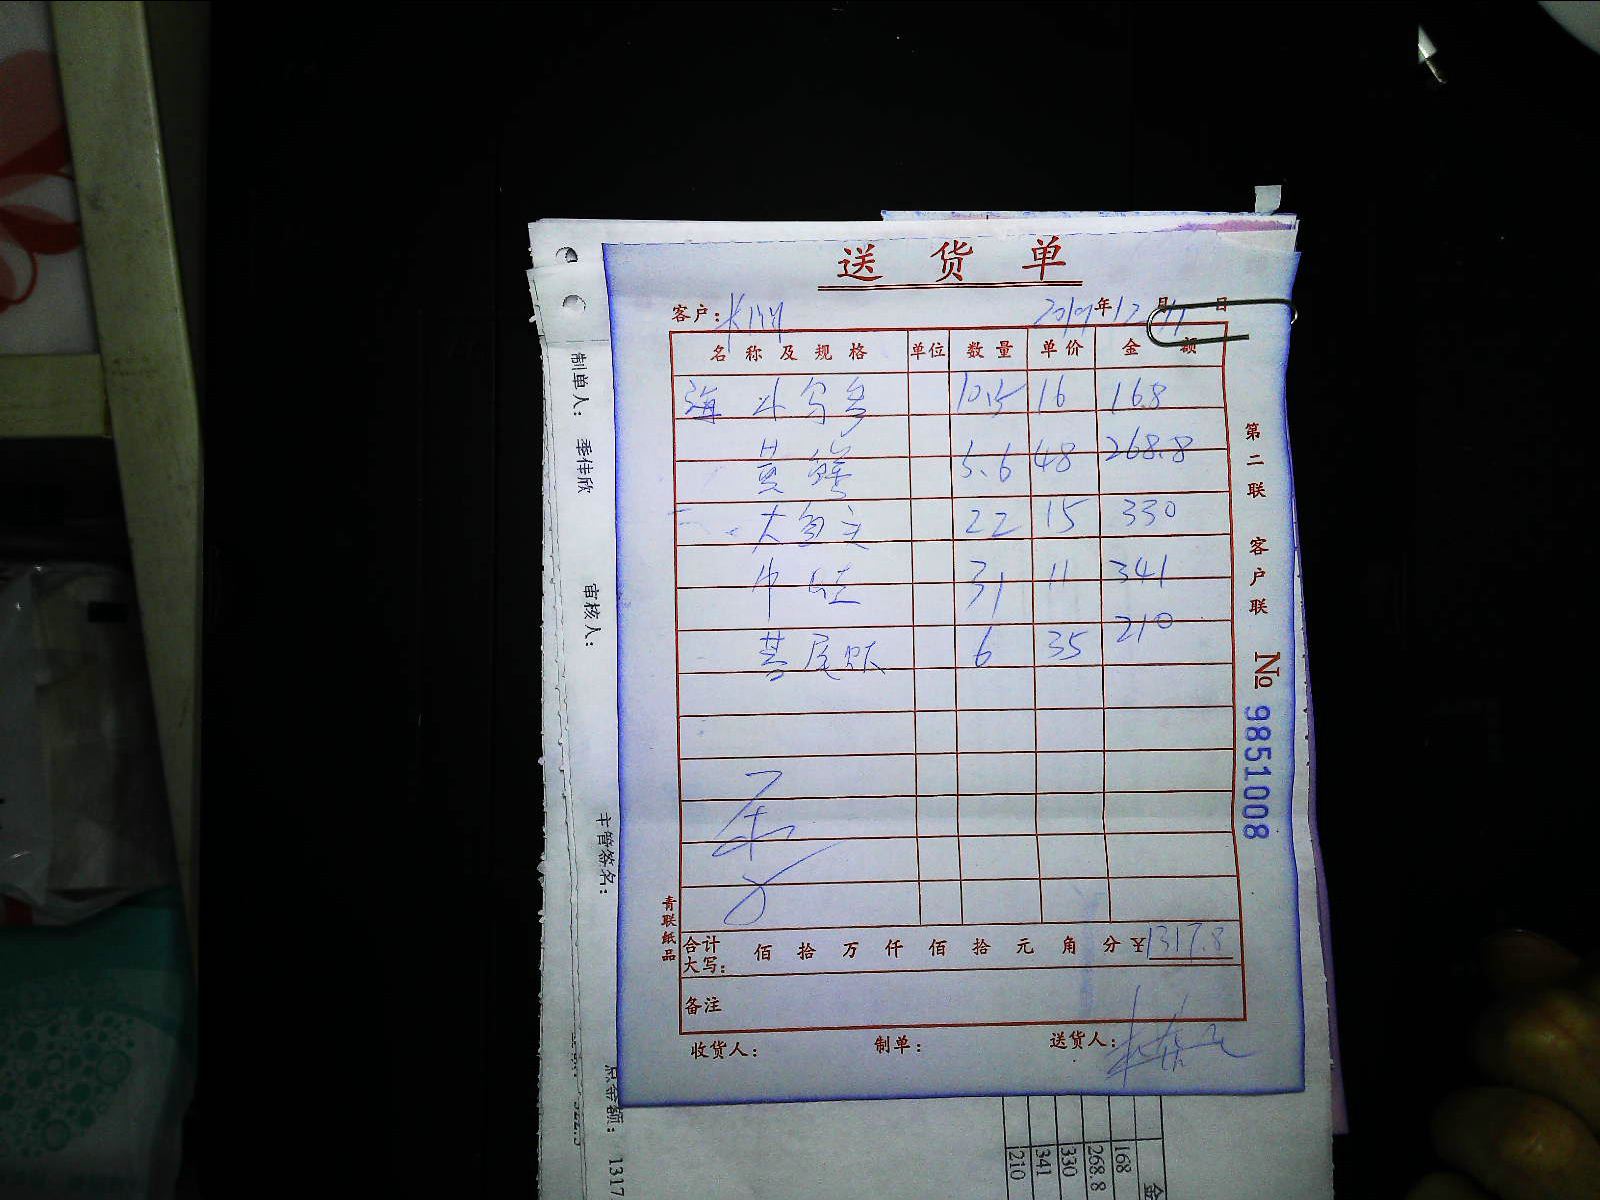 送货单
客户: 2019年12月11日
名称及规格 单位 数量 单价 金额
海 10.5 16 168
黄鳝 5.6 48 268.8
大鱼 22 15 330
牛蛙 31 11 341
尾 6 35 210
合计大写: 佰 拾 万 仟 佰 拾 元 角 分 ¥1317.8
备注
收货人: 制单: 送货人:
第二联 客户联 № 9851008
青联纸品
制单人: 季佳欣
审核人:
主管签名:
总金额: 1317
金
168
268.8
330
341
210